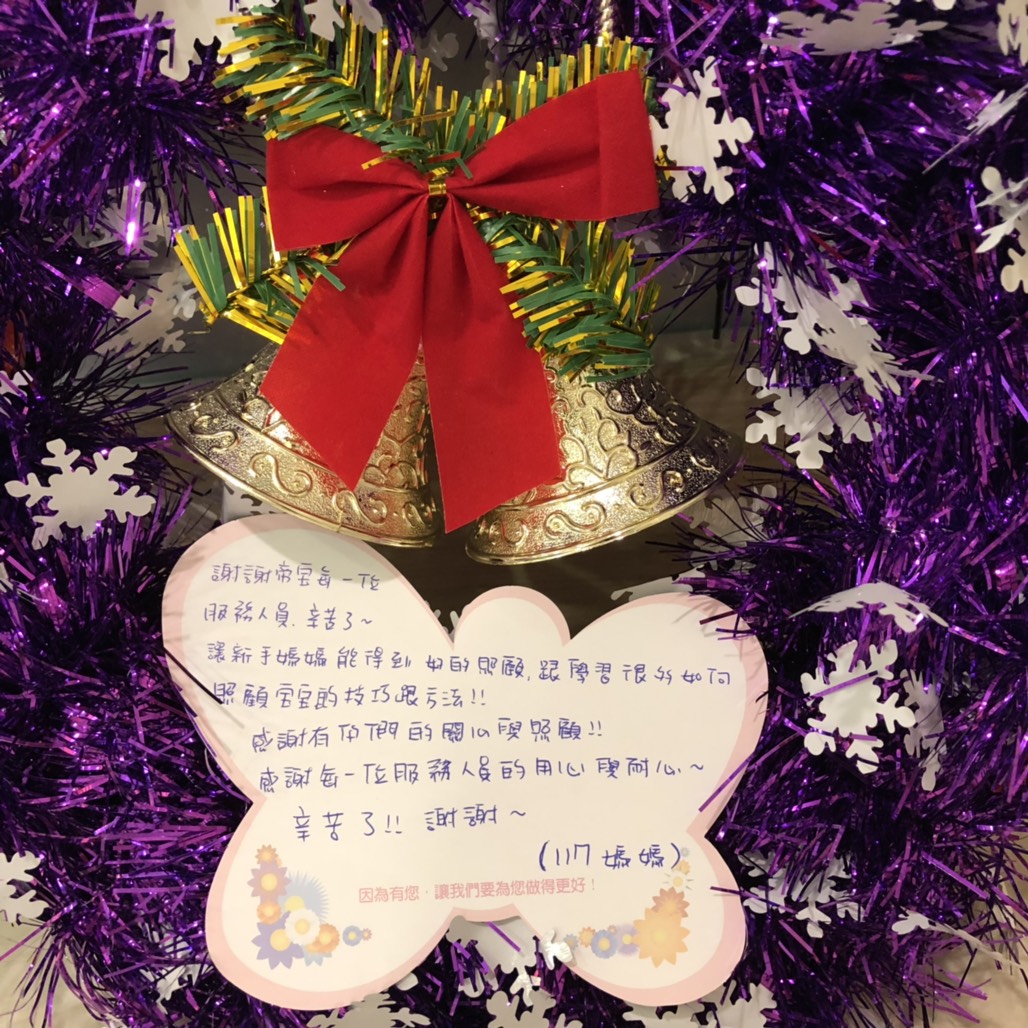 謝謝帝宝每一位
服務人員.辛苦了~
讓新手媽媽能得到好的照顧,跟學習很多如何
照顧宝宝的技巧跟方法!!
感謝有你們的關心與照顧!!
感謝每一位服務人員的用心與耐心~
辛苦了!! 謝謝~
(117媽媽)
因為有您，讓我們要為您做得更好！